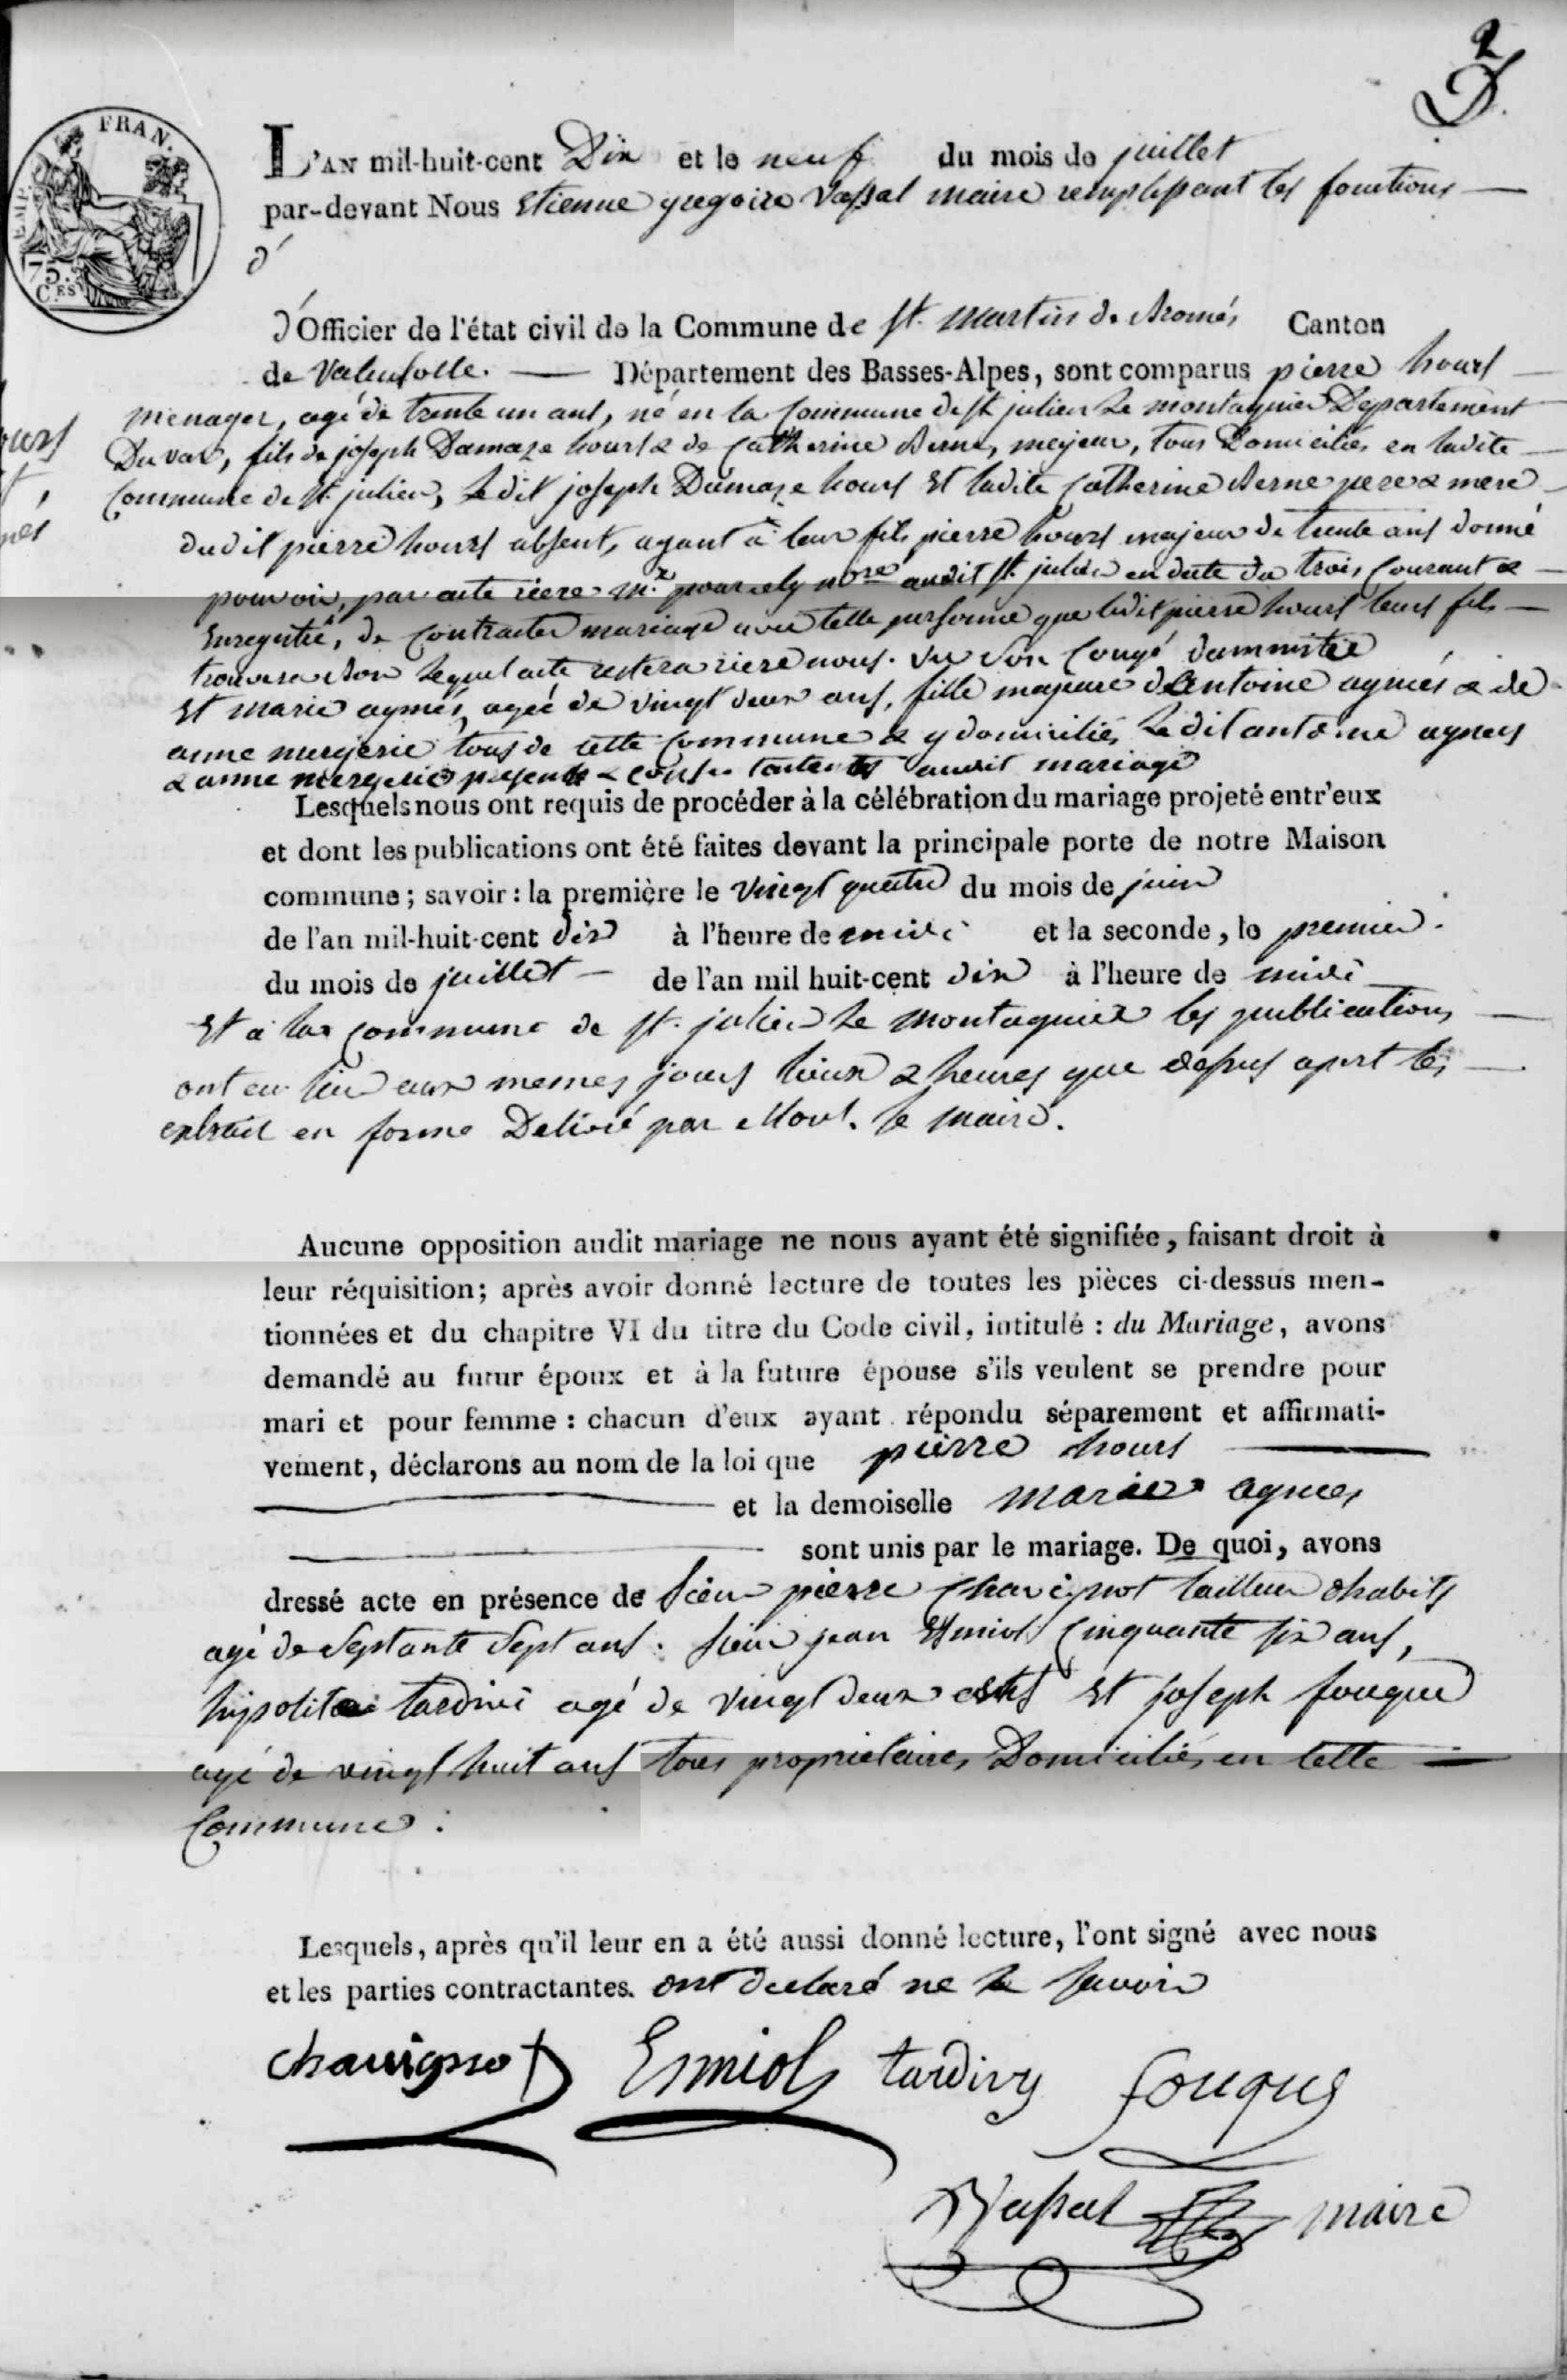 2
FRAN.
EMP.
75.
C.ES
L'AN mil-huit-cent Dix et le neuf du mois de juillet
par-devant Nous Etienne gregoire Vassal maire remplissant les fonctions
d'
d'Officier de l'état civil de la Commune de St. Martin de Bromés Canton
de Valensolle. Département des Basses-Alpes, sont comparus pierre hours
menager, agé de trente un ans, né en la Commune de St julien le montagnier Departement
Du var, fils de joseph Damaze hours & de Catherine Berne, majeur, tous Domiciliés en ladite
Commune de St. julien, Le dit joseph Damaze hours et ladite Catherine Berne pere & mere
dudit pierre hours absents, ayant à leur fils pierre hours majeur de trente ans donné
pouvoir, par acte riere Mr. nore audit St. julien en date du trois Courant &
Enregistré, de Contracter mariage avec telle personne que ledit pierre hours leurs fils
trouvera bon lequel acte restera riere nous. vu son Congé dammistie
et marie aymés, ageé de vingt deux ans, fille majeure d'Antoine aymés & de
anne mergerie tous de cette Commune & y domiciliés, Le dit antoine aymes
& anne mergerie presents & audit mariage
Lesquels nous ont requis de procéder à la célébration du mariage projeté entr'eux
et dont les publications ont été faites devant la principale porte de notre Maison
commune; savoir: la première le vingt quatre du mois de juin
de l'an mil-huit-cent dix à l'heure de midi et la seconde, le premier.
du mois de juillet de l'an mil huit-cent dix à l'heure de midi
et a la commune de St. julien le montagnier les publications
ont eu lieu aux memes jours lieux & heures que dessus apert les
extrait en forme Delivré par Mons. le maire.
Aucune opposition audit mariage ne nous ayant été signifiée, faisant droit à
leur réquisition; après avoir donné lecture de toutes les pièces ci-dessus men-
tionnées et du chapitre VI du titre du Code civil, intitulé : du Mariage, avons
demandé au futur époux et à la future épouse s'ils veulent se prendre pour
mari et pour femme : chacun d'eux ayant répondu séparement et affirmati-
vement, déclarons au nom de la loi que pierre hours
et la demoiselle marie aymes
sont unis par le mariage. De quoi, avons
dressé acte en présence de Sieur pierre Chavignot tailleur dhabits
agé de Septante Sept ans. Sieur jean Esmiols Cinquante six ans,
hipolite tardivi agé de vingt deux ans et joseph fouque
agé de vingt huit ans tous proprietaires Domiciliés en cette
Commune :
Lesquels, après qu'il leur en a été aussi donné lecture, l'ont signé avec nous
et les parties contractantes. ont declaré ne le savoir
chauvignot Esmiols tardivy fouque
Vassal maire